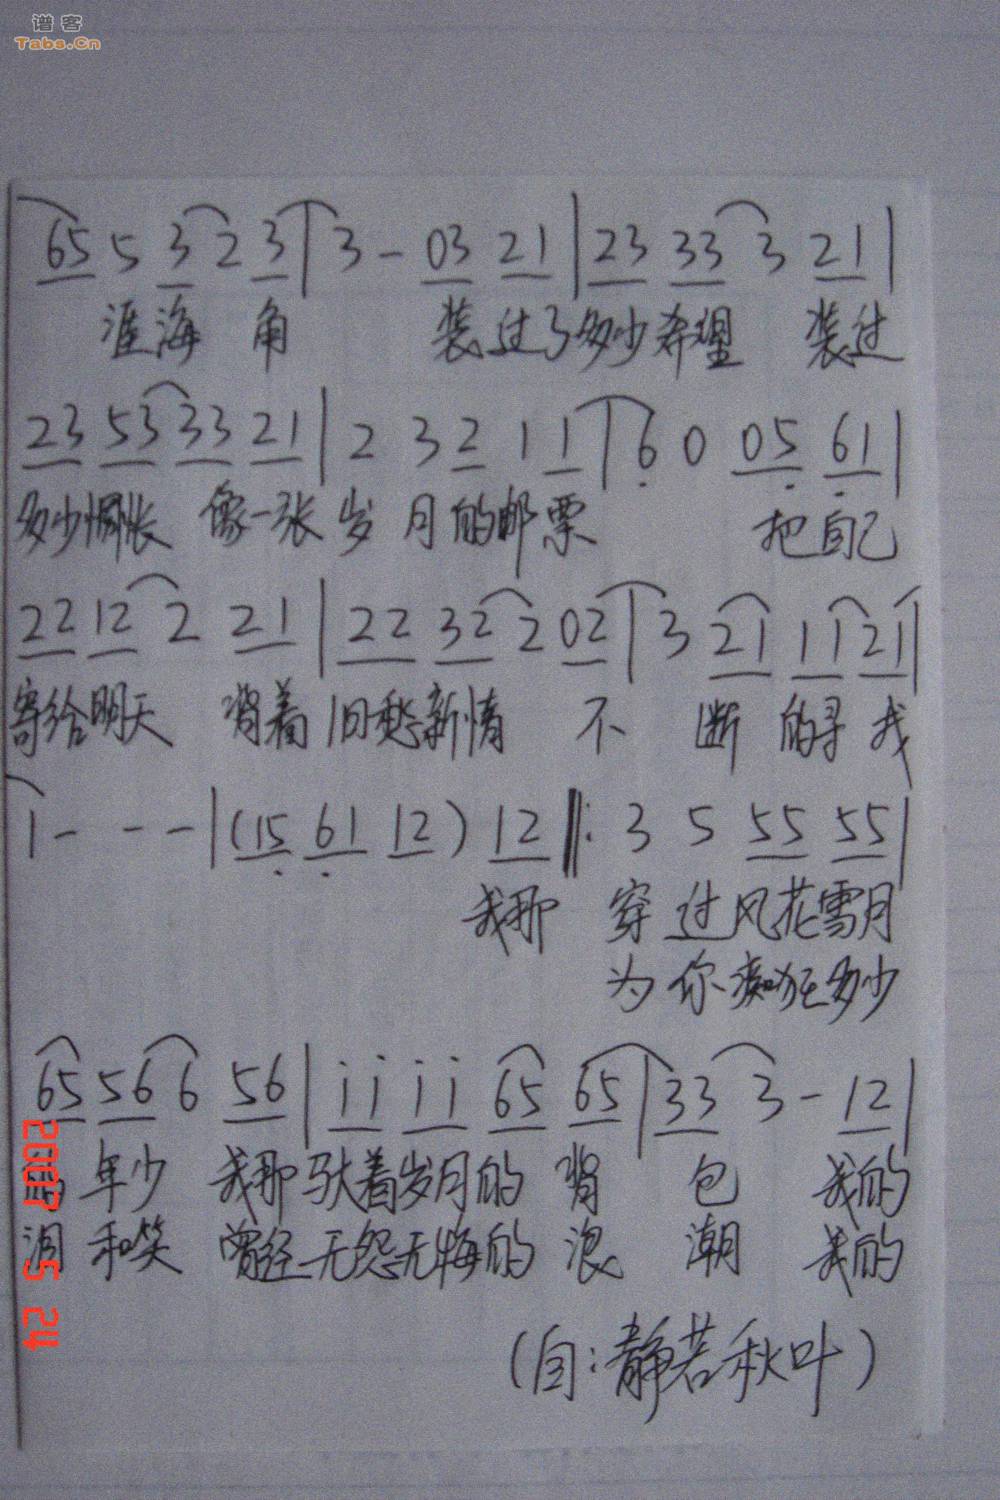 谱客
Tabs.Cn
65 5 3 2 3 | 3 - 03 21 | 23 33 3 21 |
涯海 角 装过了多少希望 装过
23 53 33 21 | 2 3 2 1 1 | 6 0 05 61 |
多少惆怅 像一张岁月的邮票 把自己
22 12 2 21 | 22 32 2 02 | 3 21 11 21 |
寄给明天 背着旧愁新情 不 断 的寻 找
1 - - - | (15 61 12) 12 ‖: 3 5 55 55 |
我那 穿过风花雪月
为你痴狂多少
65 56 6 56 | i i i i 65 65 | 33 3 - 12 |
年少 我那驮着岁月的 背 包 我的
泪 和笑 曾经无怨无悔的 浪 潮 我的
(自:静若秋叶)
2007 5 24